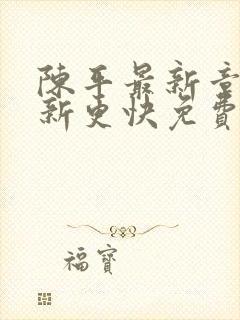 陳平最新章
新更快免費
福寶